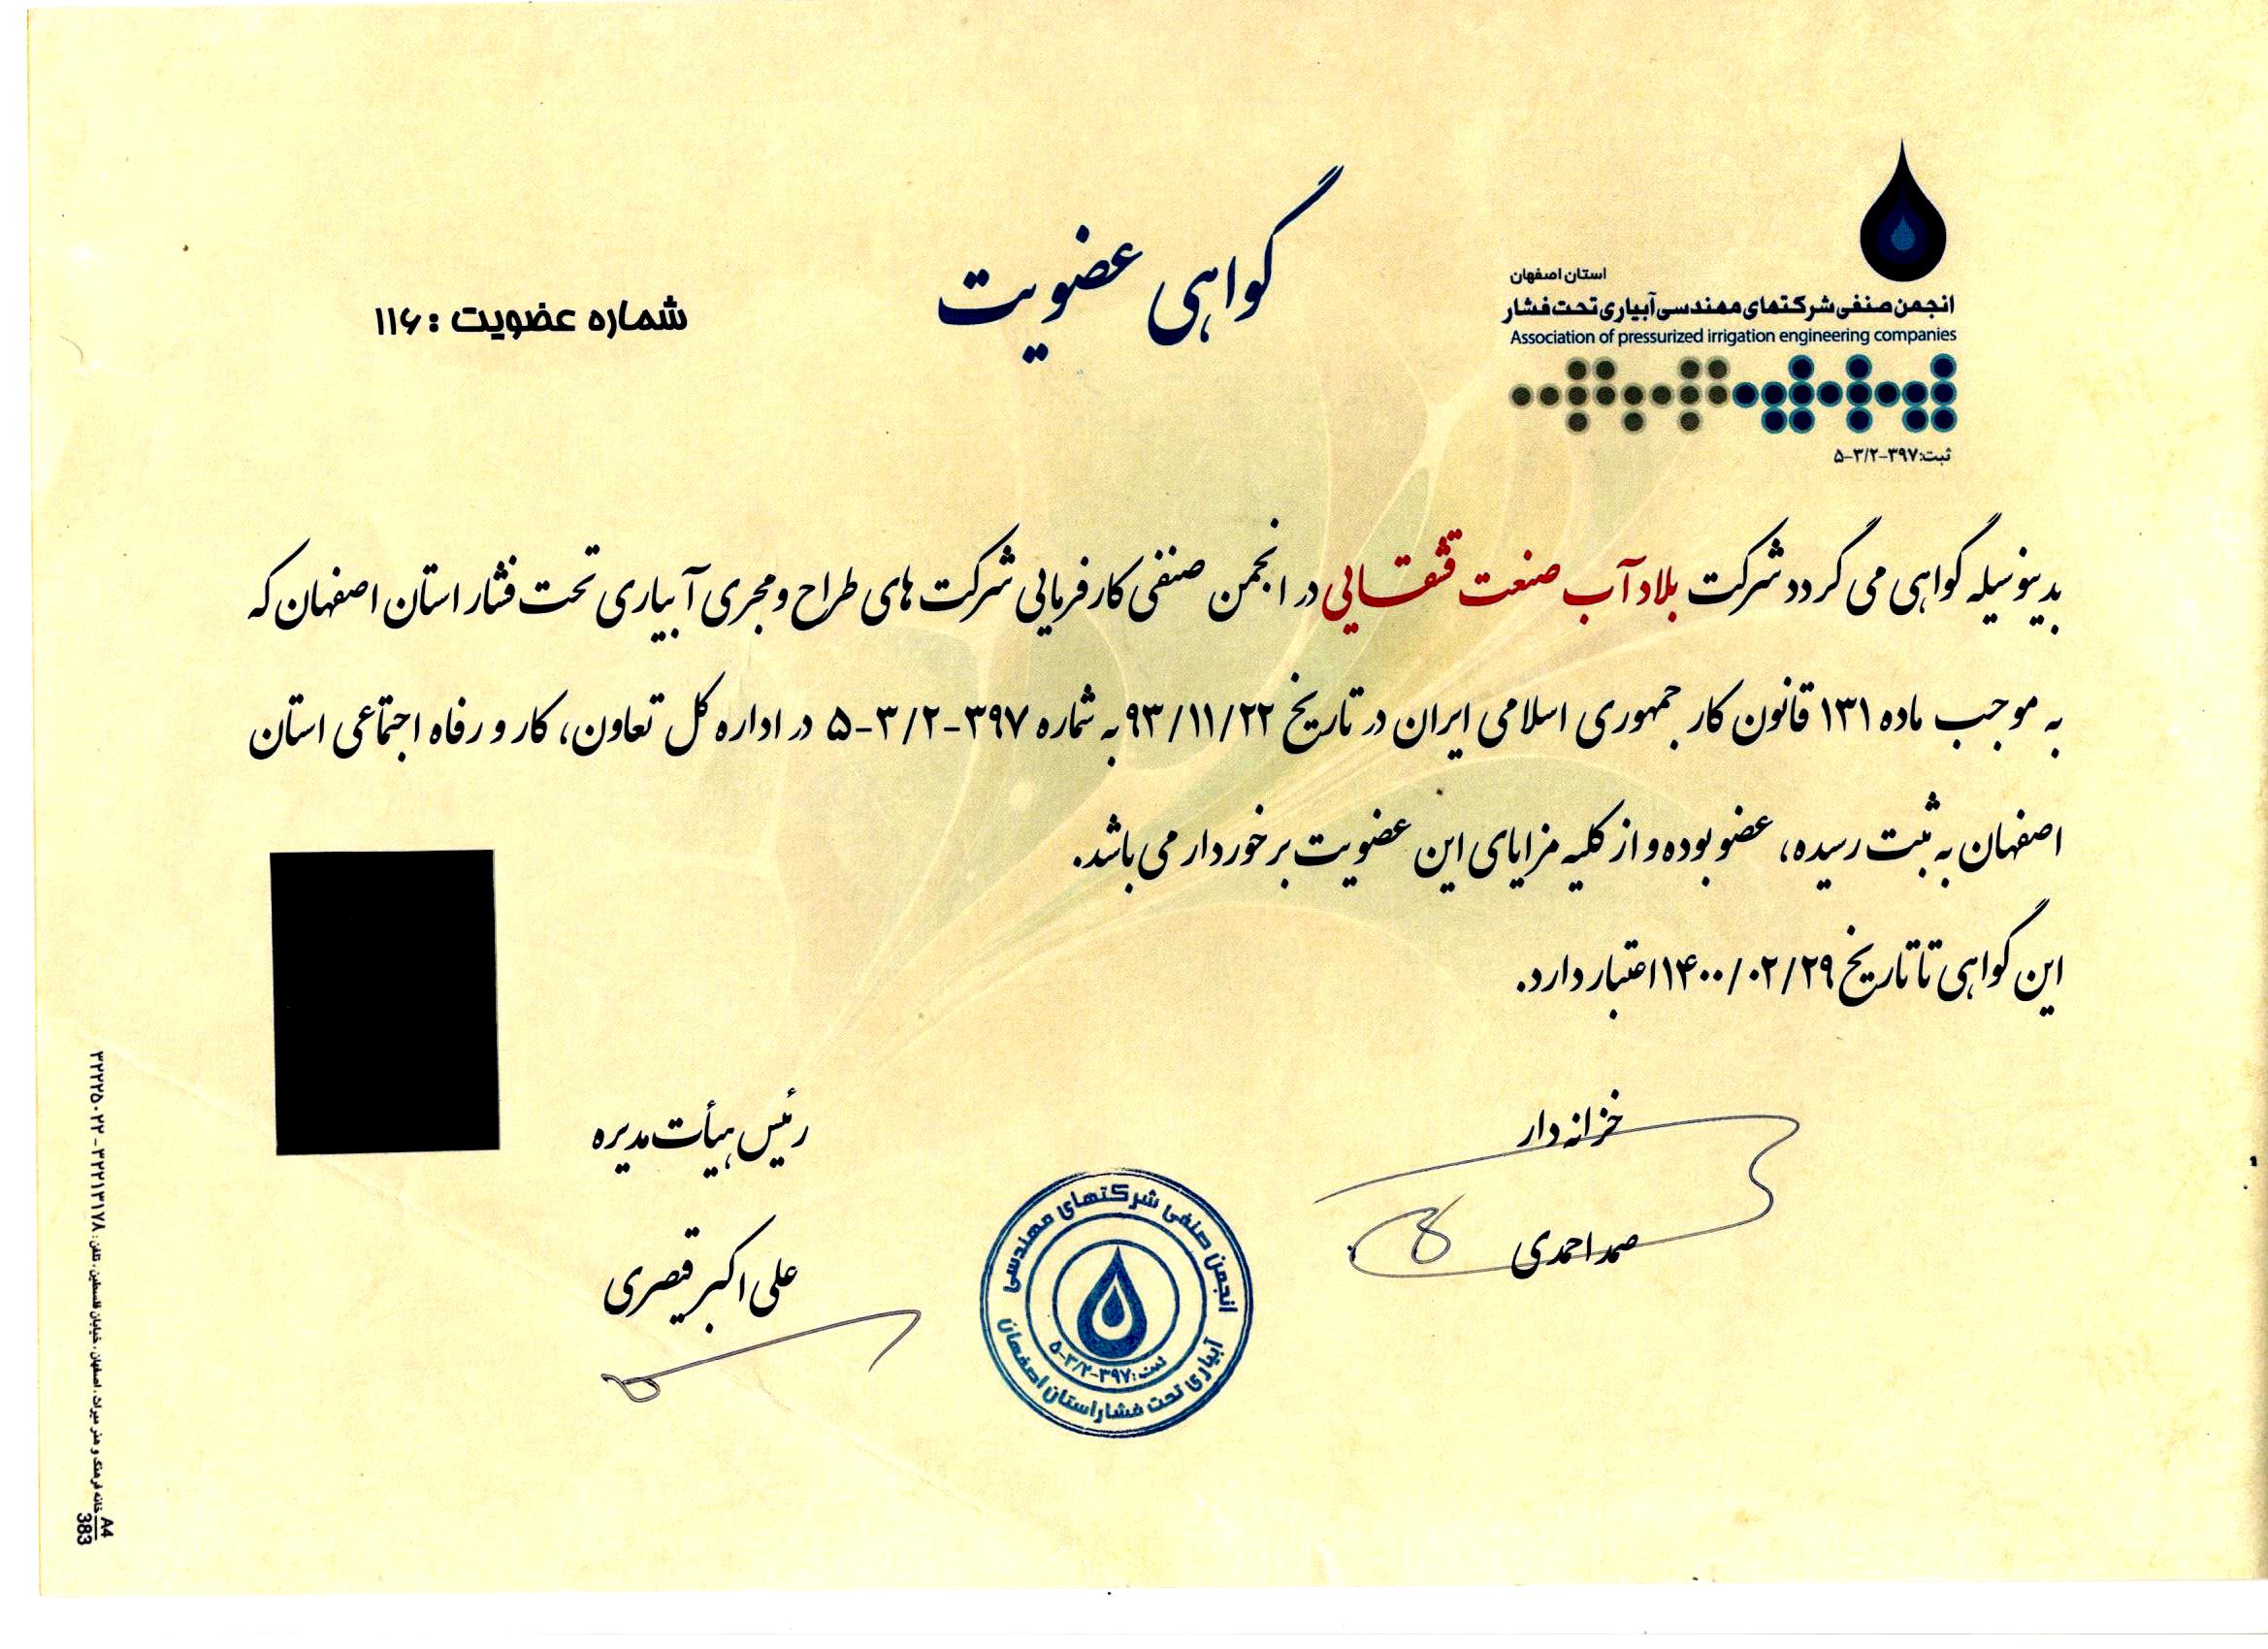 استان اصفهان
انجمن صنفی شرکتهای مهندسی آبیاری تحت فشار
Association of pressurized irrigation engineering companies
ثبت:۳۹۷-۳/۲-۵
گواهی عضویت
شماره عضویت : ۱۱۶
بدینوسیله گواهی می گردد شرکت بلاد آب صنعت قشقایی در انجمن صنفی کارفرمایی شرکت های طراح و مجری آبیاری تحت فشار استان اصفهان که
به موجب ماده ۱۳۱ قانون کار جمهوری اسلامی ایران در تاریخ ۹۳/۱۱/۲۲ به شماره ۳۹۷-۳/۲-۵ در اداره کل تعاون، کار و رفاه اجتماعی استان
اصفهان به ثبت رسیده، عضو بوده و از کلیه مزایای این عضویت برخوردار می باشد.
این گواهی تا تاریخ ۱۴۰۰/۰۲/۲۹ اعتبار دارد.
خزانه دار
صمد احمدی
رئیس هیأت مدیره
علی اکبر قیصری
انجمن صنفی شرکتهای مهندسی
آبیاری تحت فشار استان اصفهان
ثبت:۳۹۷-۳/۲-۵
A4
383
خانه فرهنگ و هنر میراث، اصفهان، خیابان فلسطین، تلفن: ۳۲۲۱۳۱۷۸ - ۳۲۲۲۵۰۲۲